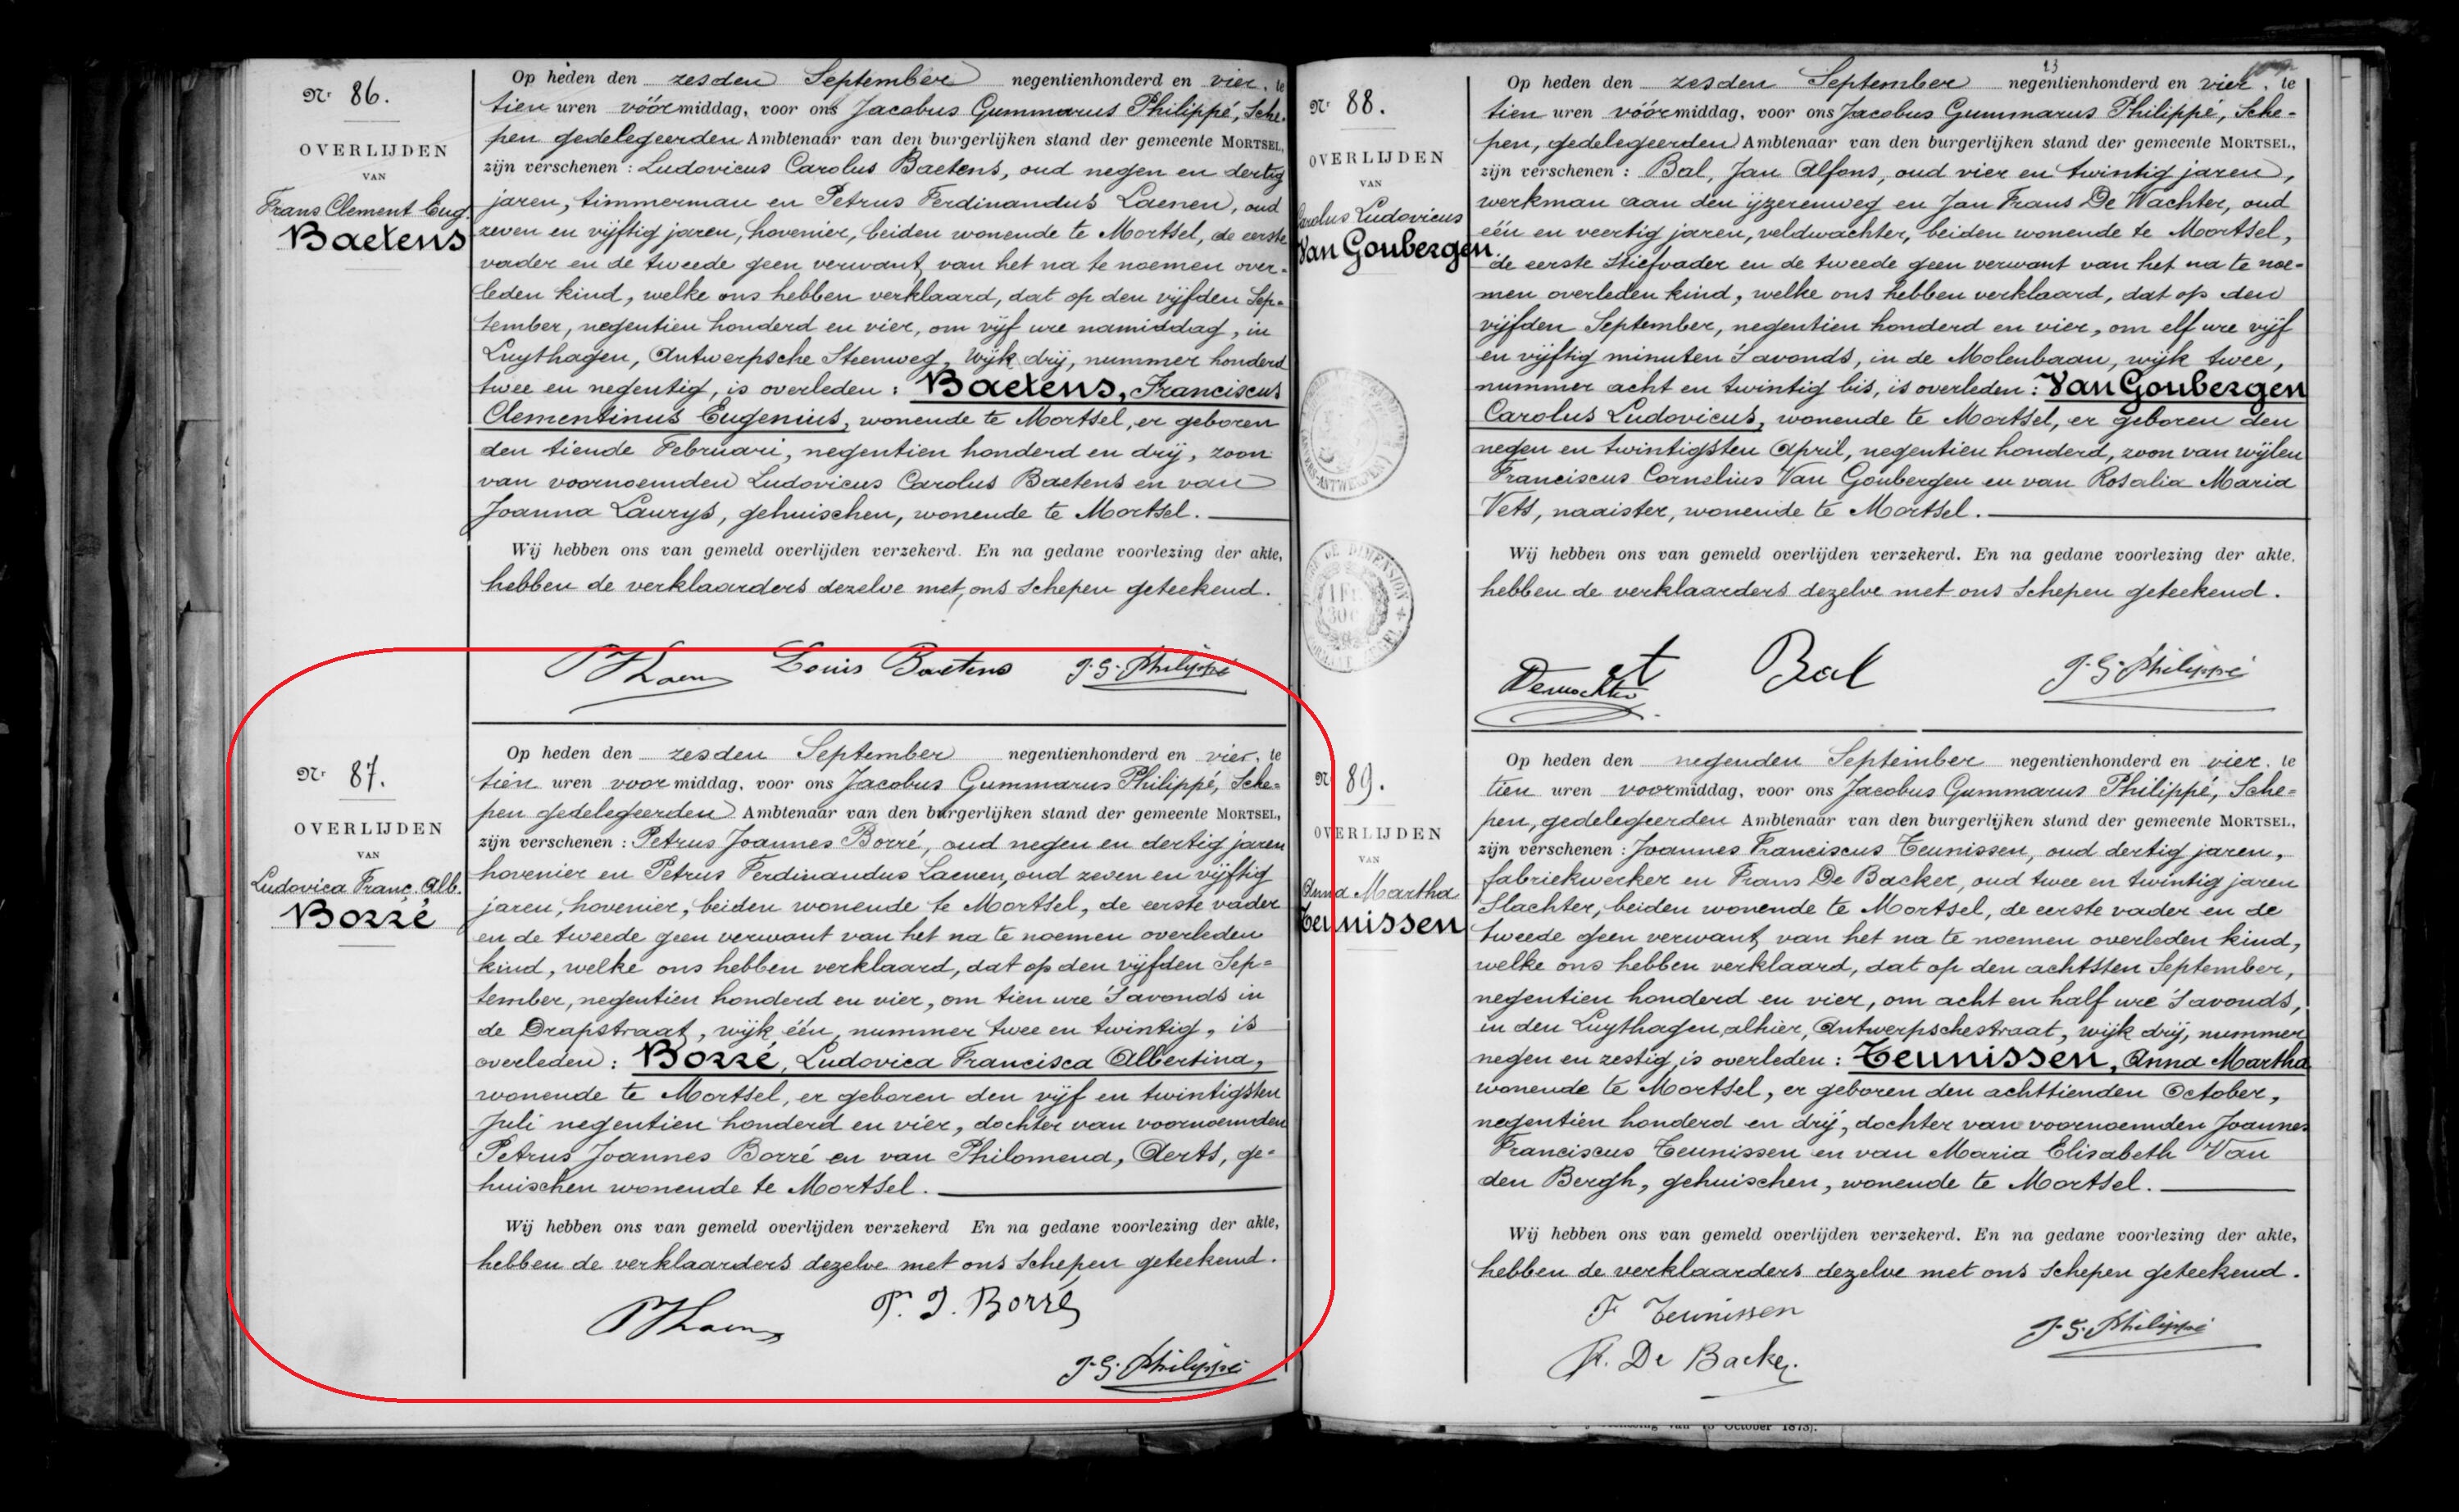 Nr 86.
OVERLIJDEN
VAN
Frans Clement Eug.
Baetens
Op heden den zesden September negentienhonderd en vier, te
tien uren vóórmiddag, voor ons Jacobus Gummarus Philippé, Sche-
pen gedelegeerden Ambtenaar van den burgerlijken stand der gemeente MORTSEL,
zijn verschenen : Ludovicus Carolus Baetens, oud negen en dertig
jaren, timmerman en Petrus Ferdinandus Laenen, oud
zeven en vijftig jaren, hovenier, beiden wonende te Mortsel, de eerste
vader en de tweede geen verwant van het na te noemen over-
leden kind, welke ons hebben verklaard, dat op den vijfden Sep-
tember, negentien honderd en vier, om vijf ure namiddag, in
Luythagen, Antwerpsche Steenweg, wijk drij, nummer honderd
twee en negentig, is overleden : Baetens, Franciscus
Clementinus Eugenius, wonende te Mortsel, er geboren
den tiende Februari, negentien honderd en drij, zoon
van voornoemden Ludovicus Carolus Baetens en van
Joanna Laurys, gehuischen, wonende te Mortsel.
Wij hebben ons van gemeld overlijden verzekerd. En na gedane voorlezing der akte,
hebben de verklaarders dezelve met ons Schepen geteekend.
Louis Baetens J. G. Philippé
Nr 87.
OVERLIJDEN
VAN
Ludovica Franc. Alb.
Borré
Op heden den zesden September negentienhonderd en vier, te
tien uren voormiddag, voor ons Jacobus Gummarus Philippé, Sche-
pen gedelegeerden Ambtenaar van den burgerlijken stand der gemeente MORTSEL,
zijn verschenen : Petrus Joannes Borré, oud negen en dertig jaren
hovenier en Petrus Ferdinandus Laenen, oud zeven en vijftig
jaren, hovenier, beiden wonende te Mortsel, de eerste vader
en de tweede geen verwant van het na te noemen overleden
kind, welke ons hebben verklaard, dat op den vijfden Sep-
tember, negentien honderd en vier, om tien ure 's avonds in
de Drapstraat, wijk één, nummer twee en twintig, is
overleden : Borré, Ludovica Francisca Albertina,
wonende te Mortsel, er geboren den vijf en twintigsten
Juli negentien honderd en vier, dochter van voornoemden
Petrus Joannes Borré en van Philomena, Aerts, ge-
huischen wonende te Mortsel.
Wij hebben ons van gemeld overlijden verzekerd En na gedane voorlezing der akte,
hebben de verklaarders dezelve met ons Schepen geteekend.
P. J. Borré
J. G. Philippé
13
Nr 88.
OVERLIJDEN
VAN
Carolus Ludovicus
Van Goubergen
Op heden den zesden September negentienhonderd en vier, te
tien uren vóórmiddag, voor ons Jacobus Gummarus Philippé, Sche-
pen, gedelegeerden Ambtenaar van den burgerlijken stand der gemeente MORTSEL,
zijn verschenen : Bal, Jan Alfons, oud vier en twintig jaren,
werkman aan den ijzerenweg en Jan Frans De Wachter, oud
één en veertig jaren, veldwachter, beiden wonende te Mortsel,
de eerste stiefvader en de tweede geen verwant van het na te noe-
men overleden kind, welke ons hebben verklaard, dat op den
vijfden September, negentien honderd en vier, om elf ure vijf
en vijftig minuten 's avonds, in de Molenbaan, wijk twee,
nummer acht en twintig bis, is overleden : Van Goubergen
Carolus Ludovicus, wonende te Mortsel, er geboren den
negen en twintigsten April, negentien honderd, zoon van wijlen
Franciscus Cornelius Van Goubergen en van Rosalia Maria
Vets, naaister, wonende te Mortsel.
Wij hebben ons van gemeld overlijden verzekerd. En na gedane voorlezing der akte.
hebben de verklaarders dezelve met ons Schepen geteekend.
Dewachter Bal J. G. Philippé
Nr 89.
OVERLIJDEN
VAN
Anna Martha
Teunissen
Op heden den negenden September negentienhonderd en vier. te
tien uren voormiddag, voor ons Jacobus Gummarus Philippé, Sche-
pen, gedelegeerden Ambtenaar van den burgerlijken stand der gemeente MORTSEL,
zijn verschenen : Joannes Franciscus Teunissen, oud dertig jaren,
fabriekwerker en Frans De Backer, oud twee en twintig jaren
Slachter, beiden wonende te Mortsel, de eerste vader en de
tweede geen verwant van het na te noemen overleden kind,
welke ons hebben verklaard, dat op den achtsten September,
negentien honderd en vier, om acht en half ure 's avonds,
in den Luythagen, alhier, Antwerpschestraat, wijk drij, nummer
negen en zestig, is overleden : Teunissen, Anna Martha
wonende te Mortsel, er geboren den achttienden October,
negentien honderd en drij, dochter van voornoemden Joannes
Franciscus Teunissen en van Maria Elisabeth Van
den Bergh, gehuischen, wonende te Mortsel.
Wij hebben ons van gemeld overlijden verzekerd. En na gedane voorlezing der akte,
hebben de verklaarders dezelve met ons Schepen geteekend.
F Teunissen
J. G. Philippé
F. De Backer.
October 1873).